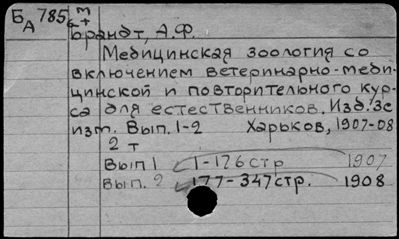 Б 785 т
А
Брандт, А.Ф.
Медицинская зоология со
включением ветеринарно-меди-
цинской и повторительного кур-
са для естественников. Изд. 3е
изт. Вып. 1-2 Харьков, 1907-08
2 т
Вып 1 1-176 стр 1907
Вып. 2 177-347 стр. 1908